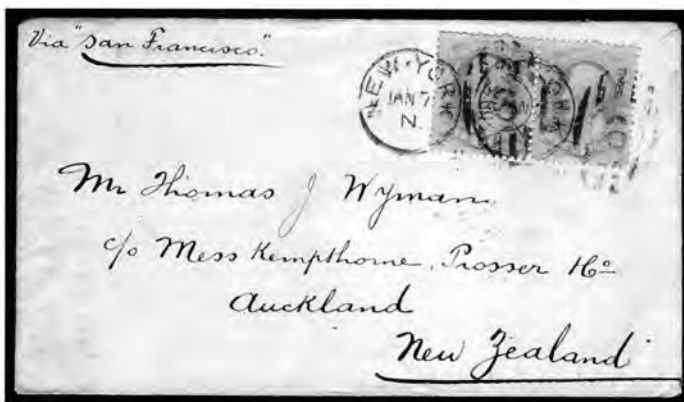 Via "San Francisco."
NEW YORK
JAN 7
N.
Mr Thomas J Wyman
c/o Mess Kempthorne, Prosser & Co
Auckland
New Zealand